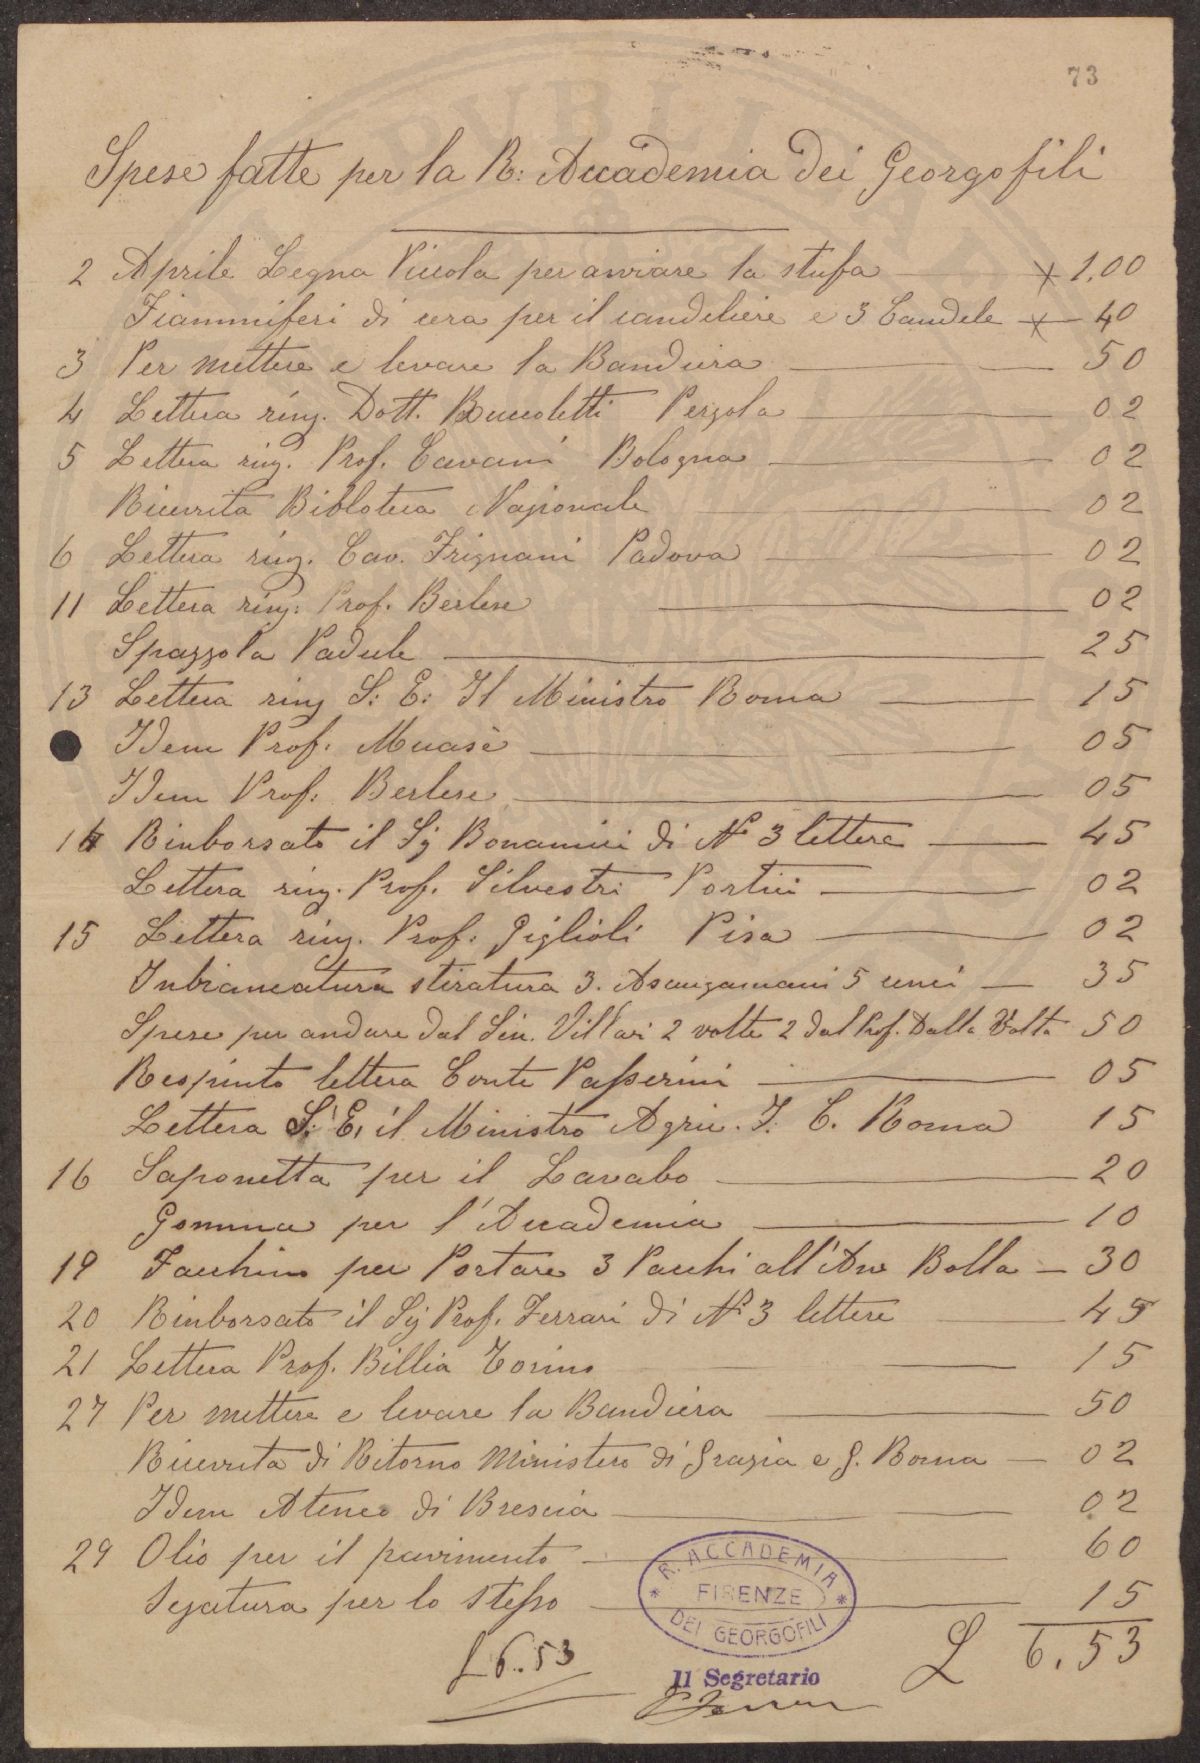 73
Spese fatte per la R. Accademia dei Georgofili
2 Aprile Legna Piccola per avviare la stufa x 1,00
Fiammiferi di cera per il candeliere e 3 Candele x 40
3 Per mettere e levare la Bandiera 50
4 Lettera ring. Dott. Pergola 02
5 Lettera ring. Prof. Cavani Bologna 02
Ricevuta Bibloteca Nazionale 02
6 Lettera ring. Cav. Frignani Padova 02
11 Lettera ring. Prof. Berlese 02
Spazzola Padule 25
13 Lettera ring S: E: Il Ministro Roma 15
Idem Prof. 05
Idem Prof: Berlese 05
14 Rinborsato il Sig Bonamici di No 3 lettere 45
Lettera ring. Prof. Silvestri Portici 02
15 Lettera ring. Prof: Giglioli Pisa 02
Inbiancatura stiratura 3. Asciugamani 5 cenci 35
Spese per andare dal Sen. Villari 2 volte 2 dal Prof. Dalla Volta 50
Respinto lettera Conte Passerini 05
Lettera S. E. il Ministro Agric. I. C. Roma 15
16 Saponetta per il Lavabo 20
Gomma per l'Accademia 10
19 Facchino per Portare 3 Pacchi all' Bolla 30
20 Rinborsato il Sig Prof. Ferrari di No 3 lettere 45
21 Lettera Prof. Billia Torino 15
27 Per mettere e levare la Bandiera 50
Ricevuta di Ritorno Ministero di Grazia e G. Roma 02
Idem Ateneo di Brescia 02
29 Olio per il pavimento 60
Segatura per lo stesso 15
R. ACCADEMIA
FIRENZE
DEI GEORGOFILI
£ 6.53
£ 6.53
Il Segretario